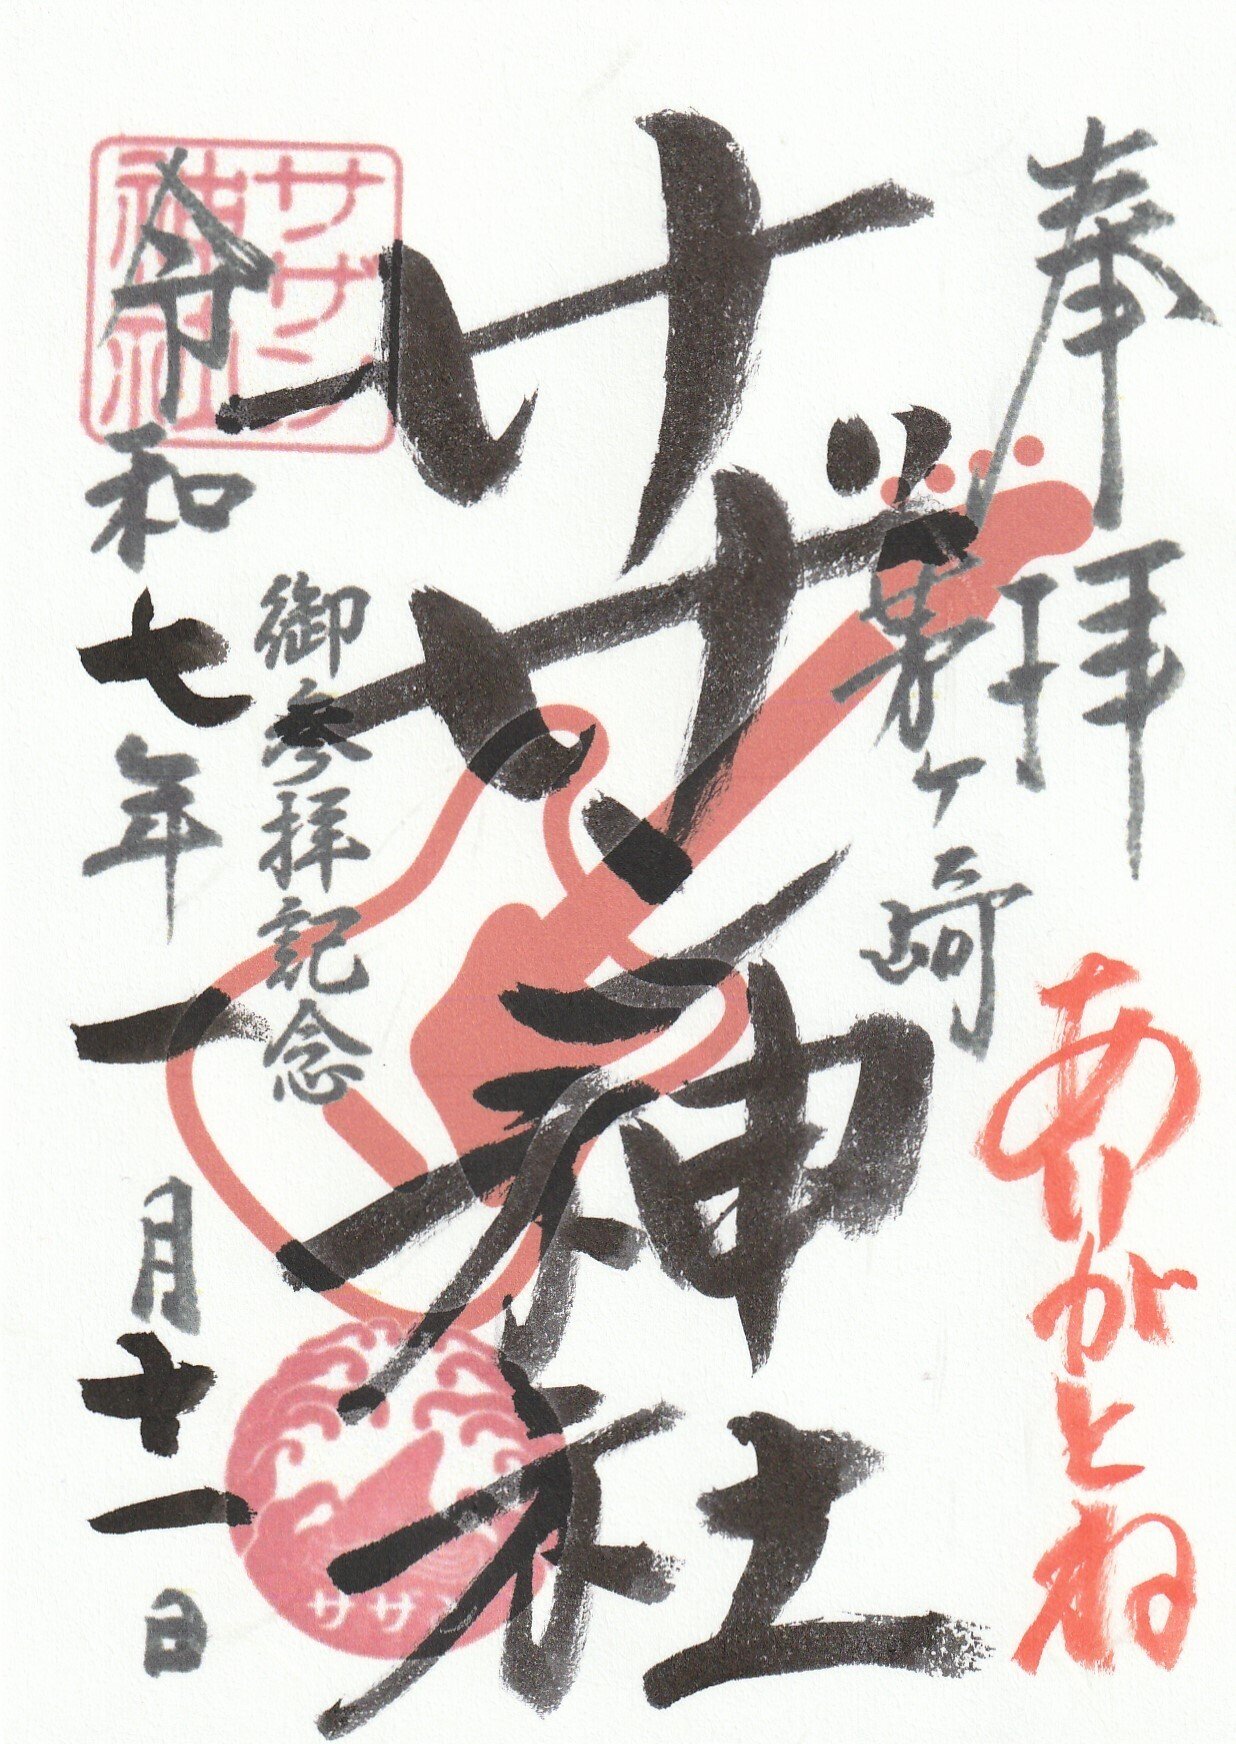 奉拝
ありがとね
茅ヶ崎
サザン神社
御参拝記念
令和七年一月十一日
サザン
神社